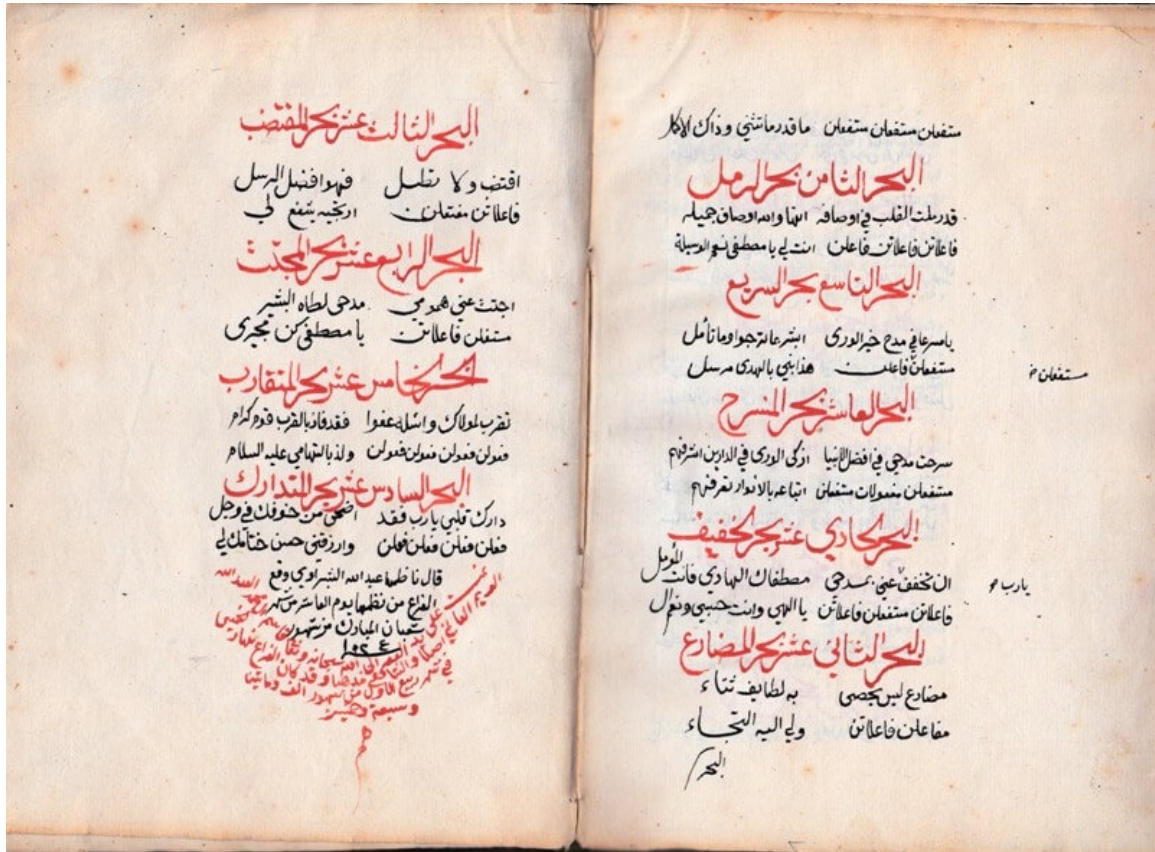 مستفعلن مستفعلن مستفعلن ما قدر ما تثني وذاك الاكمل
البحر الثامن بحر الرمل
قد رملت القلب في اوصافه انها والله اوصاف جميله
فاعلاتن فاعلاتن فاعلن انت لي يا مصطفى نعم الوسيلة
البحر التاسع بحر السريع
يا مسرعا في مدح خير الورى ابشر بما ترجوا وما تأمل
مستفعلن فاعلن هذا نبي بالهدى مرسل
مستفعلن خ
البحر العاشر بحر المنسرح
سرحت مدحي في افضل الانبيا ازكى الورى في الدارين اشرفهم
مستفعلن مفعولات مستفعلن اتباعه بالانوار تعرفهم
البحر الحادي عشر بحر الخفيف
ان تخفف عني بمدحي مصطفاك الهادي فانت المؤمل
يا رب
فاعلاتن مستفعلن فاعلاتن يا الهي وانت حسبي ونعم ال
البحر الثاني عشر بحر المضارع
مضارع ليس يحصى به لطايف ثناء
مفاعلن فاعلاتن ولي اليه التجاء
البحر
البحر الثالث عشر بحر المقتضب
اقتضب ولا تطل فهو افضل الرسل
فاعلاتن مفتعلن ارتجيه يشفع لي
البحر الرابع عشر بحر المجتث
اجتث عني همومي مدحي لطاه البشير
مستفعلن فاعلاتن يا مصطفى كن مجيري
البحر الخامس عشر بحر المتقارب
تقرب لمولاك واسئله عفوا فقد فاز بالقرب قوم كرام
فعولن فعولن فعولن فعولن ولذ بالتهامي عليه السلام
البحر السادس عشر بحر المتدارك
دارك قلبي يا رب فقد اضحى من خوفك في وجل
فعلن فعلن فعلن فعلن وارزقني حسن ختامك لي
قال ناظمها عبد الله الشبراوي وقع
الفراغ من نظمها يوم العاشر من شهر
شعبان المبارك من شهور
تمت على يد الفقير الى الله سبحانه وتعالى
في شهر ربيع الاول من شهور الف وماتين
وسبعة